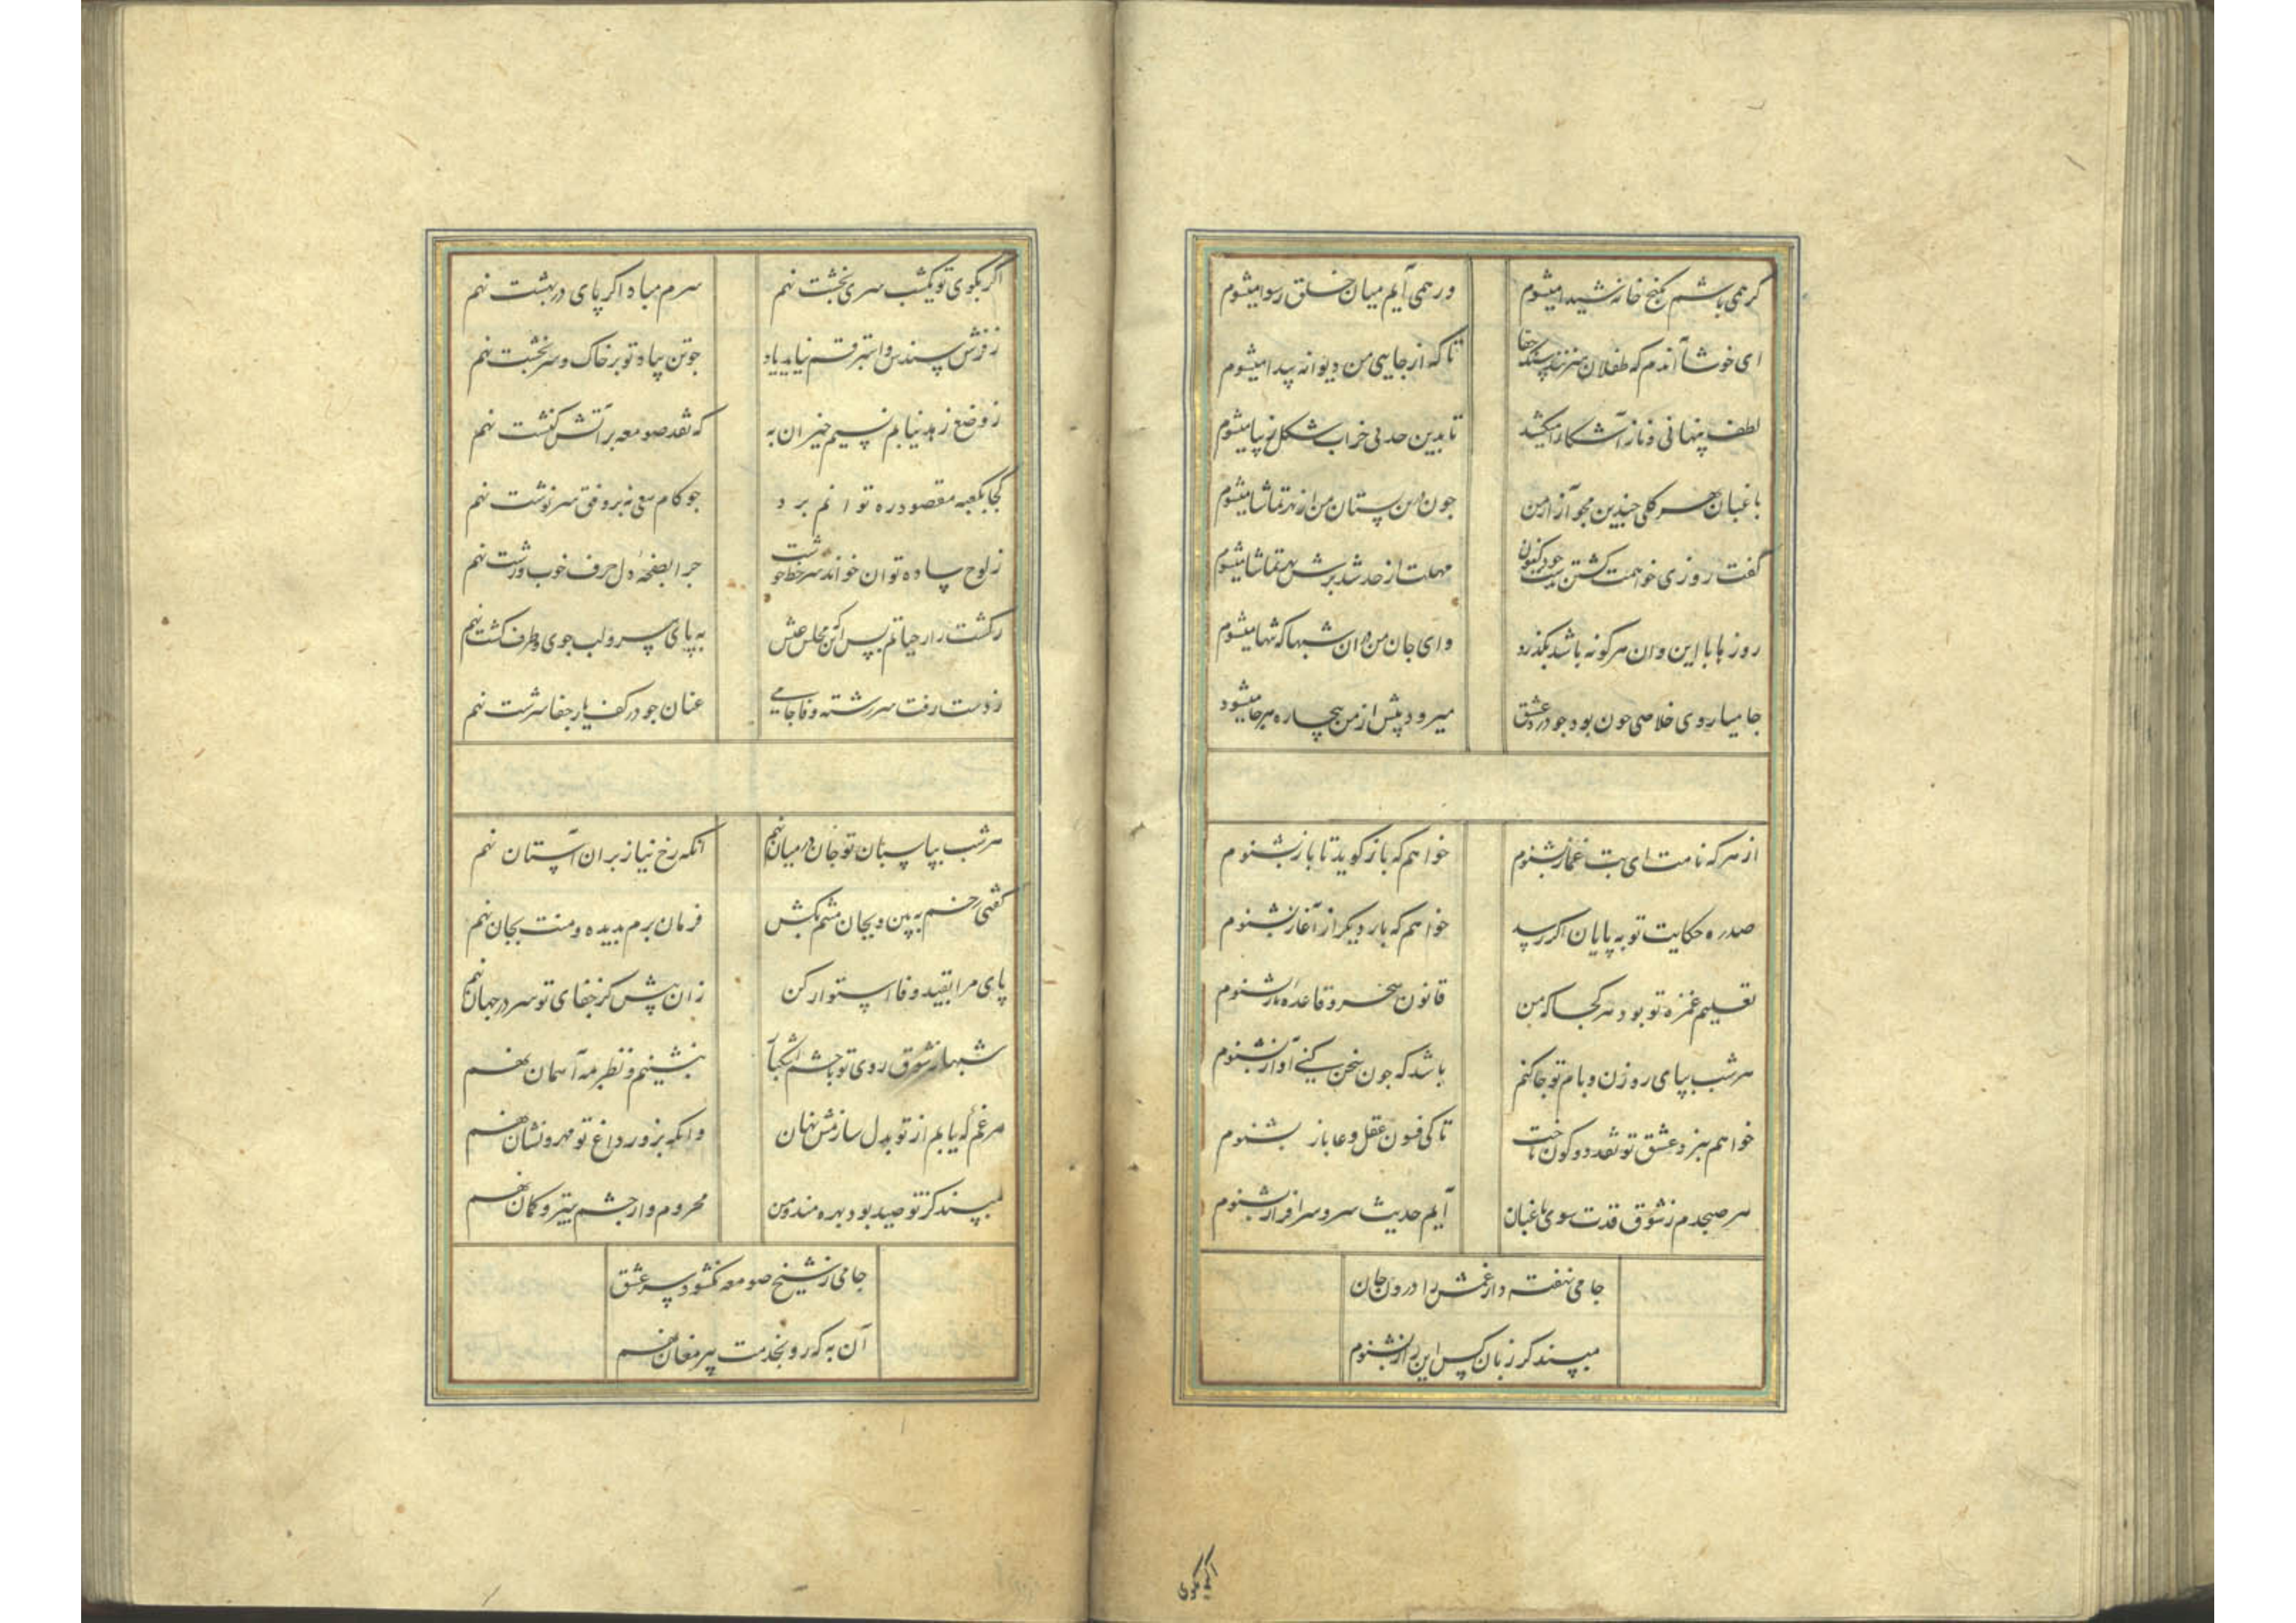 کر همی باشم بکنج خانه شیدا میشوم ور همی آیم میان خلق رسوا میشوم
ای خوشا آندم که طفلان میزنندم سنک جفا تا که از جایی من دیوانه پیدا میشوم
لطف پنهانی و ناز آشکارا میکشد تا بدین حد بی خراب شکل زیبا میشوم
باغبان هر کلی چندین مجو آزار من چون من بستان من از بهر تماشا میشوم
گفت روزی خواهمت کشتن مهلت از حد شد برش بهر تماشا میشوم
روزها با این و ان هر کونه باشد بکذرد وای جان من در ان شبها که تنها میشوم
جامیا روی خلاصی چون بود چو در عشق میرود پیش از من بیچاره هر جا میشود
از هر که نامت ای بت غماز بشنوم خواهم که باز کوید تا باز بشنوم
صد ره حکایت تو به پایان اکر رسد خواهم که بار دیکر از آغاز بشنوم
تعلیم غمزه تو بود هر کجا که من قانون سحر و قاعده ناز بشنوم
هر شب بپای روزن و بام تو جا کنم باشد که چون سخن کنی آواز بشنوم
خواهم بنرد عشق تو نقد دو کون باخت تا کی فسون عقل دغا باز بشنوم
هر صبحدم ز شوق قدت سوی باغبان آیم حدیث سرو سرافراز بشنوم
جامی نهفته دار غمش را درون جان
مپسند کز زبان کس این راز بشنوم
اکر بکوی
اکر بکوی تو یکشب سری بخشت نهم سرم مباد اکر پای در بهشت نهم
ز فرش سندس و استبرقم نیاید یاد چو تن بیاد تو بر خاک و سر بخشت نهم
ز وضع زهد نیابم نسیم خیر ان به که نقد صومعه بر آتش کنشت نهم
کجا بکعبه مقصود ره توانم برد چو کام سعی نه بر وفق سرنوشت نهم
ز لوح ساده توان خواند سر خط چو چرا بصفحه دل حرف خوب و زشت نهم
رکشت زار حیاتم بس اکن مجلس عیش به پای سرو و لب جوی و طرف کشت نهم
ز دست رفت سر رشته وفا جامی عنان چو در کف یار جفا سرشت نهم
هر شب بپاسبان تو جان در میان نهم آنکه رخ نیاز بران آستان نهم
کفتی رخم به بین و بجان منتم بکش فرمان برم بدیده و منت بجان نهم
پای مرا بقید وفا استوار کن زان پیش کز جفای تو سر در جهان نهم
شبها ز شوق روی تو با چشم اشکبار بنشینم و نظر بمه آسمان نهم
هر غم که یابم از تو بدل سازمش نهان وانکه بزور داغ تو مهر و نشان نهم
مپسند کز تو صید بود بهره مند و من محروم وار چشم بتیر و کمان نهم
جامی ز شیخ صومعه نکشود سر عشق
آن به که رو بخدمت پیر مغان نهم